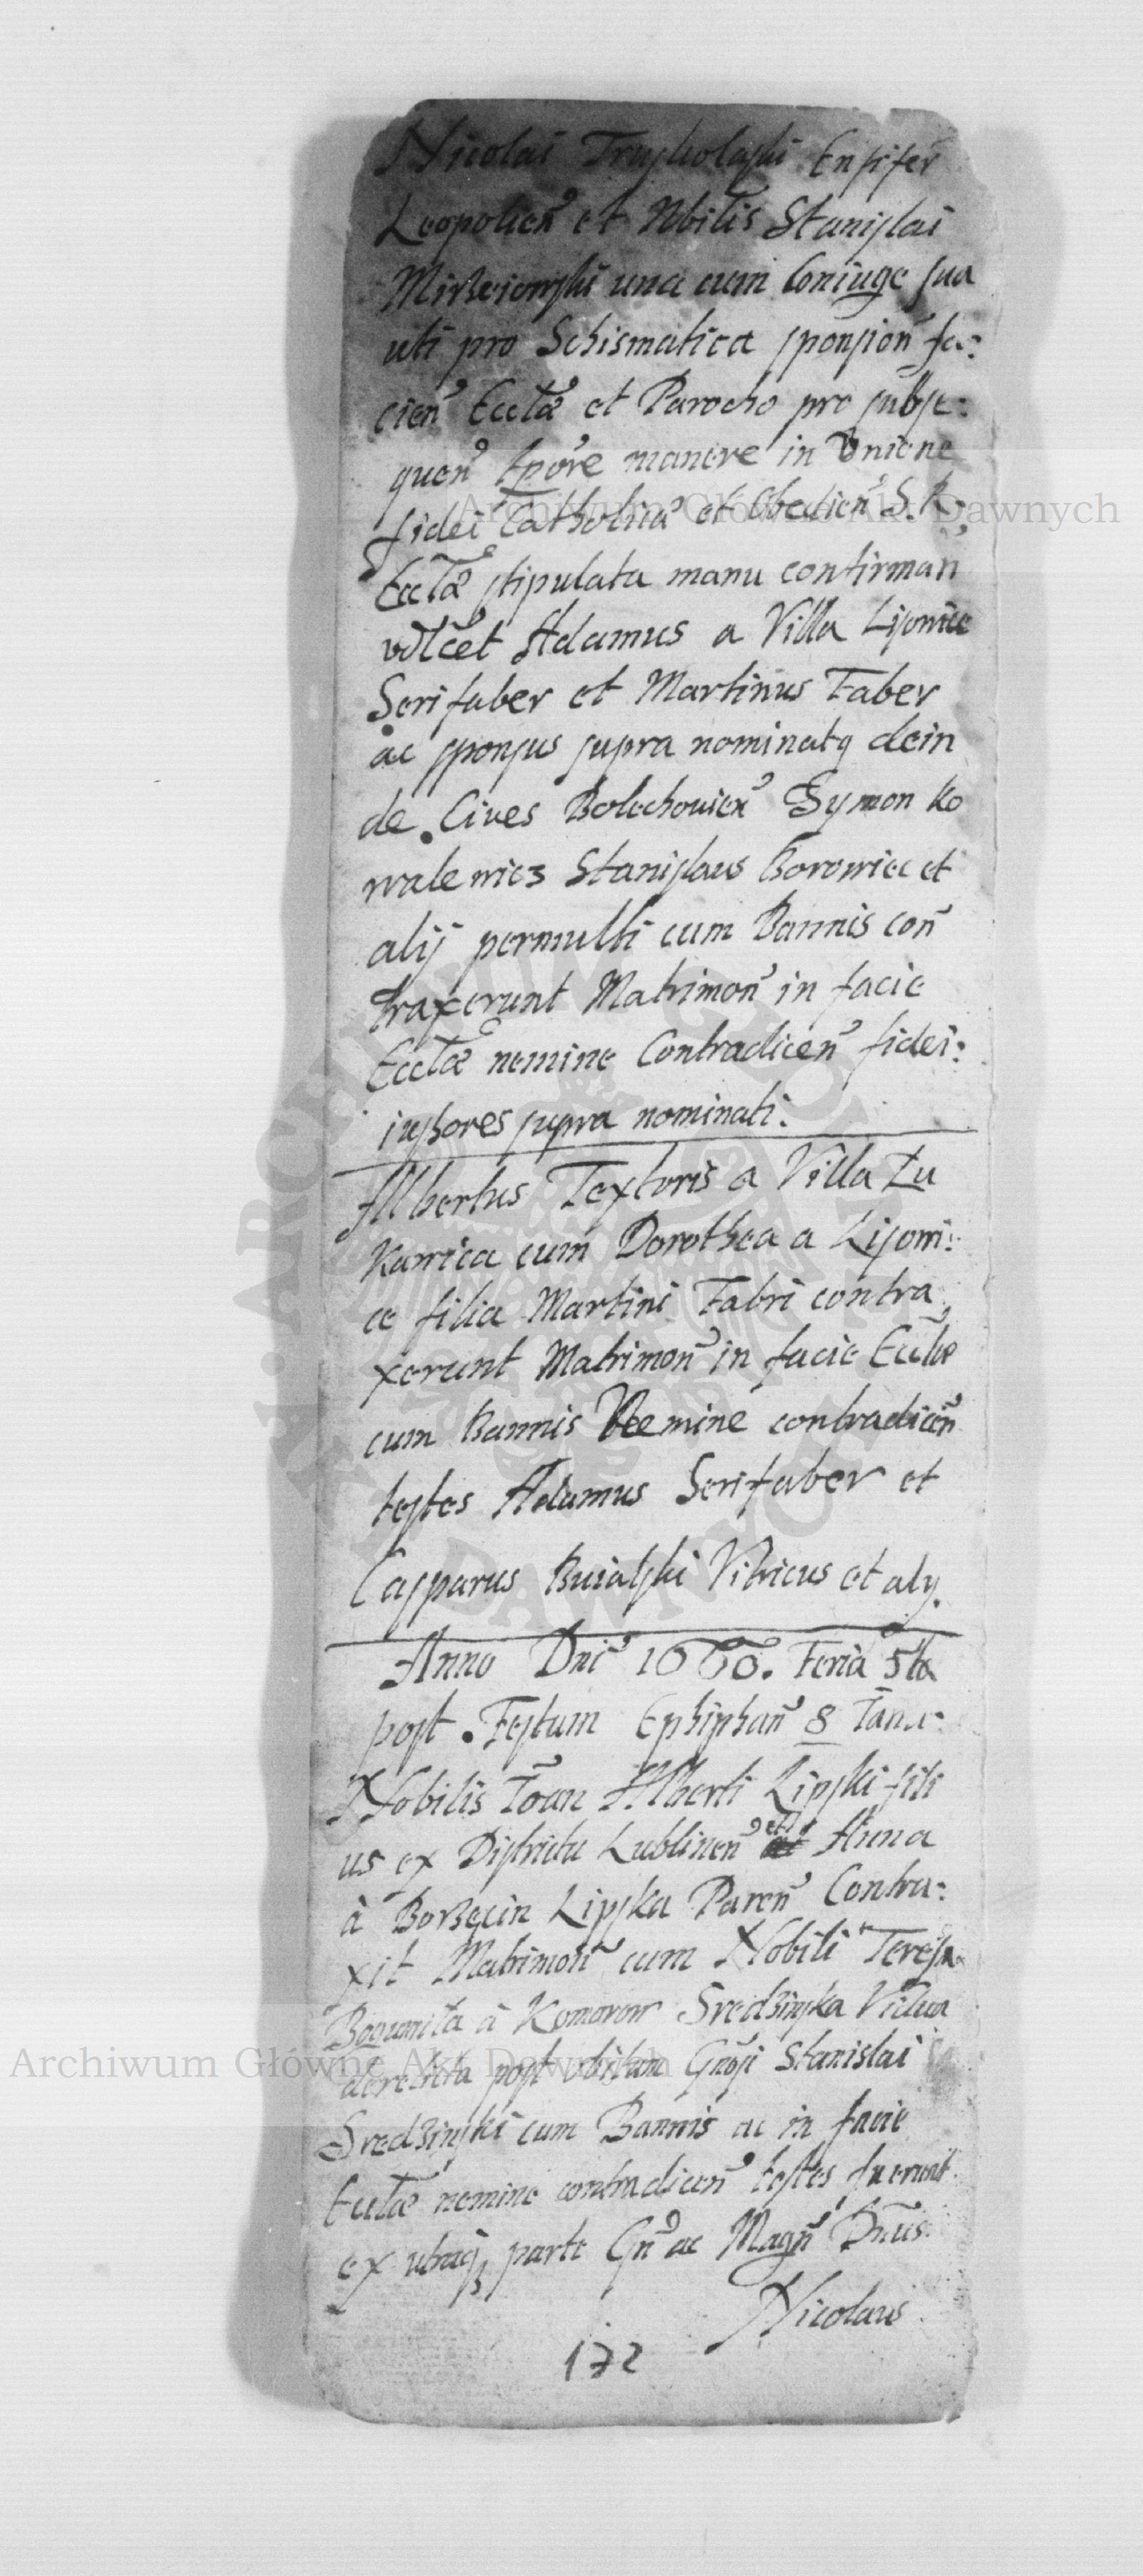 Nicolai Ensifer
Leopolien et Nbilis Stanislai
una cum Coniuge sua
uti pro Schismatica sponsion fa:
cien Ecctae et Parocho pro subse:
quen tpore manere in Vnione
fidei Catholica et Obedien S. R.
Ecctae stipulata manu confirman
vdlcet Adamus a Villa Lisowice
Serifaber et Martinus Faber
ac sponsus supra nominatq dein
de Cives Bolechovien Symon Ko
walewicz Stanislaus Borowiec et
alij permulti cum Bannis con
traxerunt Matrimon in facie
Ecctae nemine Contradicen fidei:
iussores supra nominati.
Albertus Textoris a Villa Lu
kawica cum Dorothea a Lisowi:
ce filia Martini Fabri contra
xerunt Matrimon in facie Ecctae
cum Bannis Nemine contradicen
testes Adamus Serifaber et
Casparus Buialski Vitricus et aly.
Anno Dni 1660. Feria 5ta
post Festum Ephiphan 8 Ianu:
Nobilis Ioan Alberti Lipski fili
us ex Districtu Lublinen et Anna
à Borzecin Lipska Paren Contra:
xit Matrimon cum Nobili Teresa
à Komorow Sredzinska Vidua
derelicta post obitum Gnosi Stanislai
Sredzinski cum Bannis ac in facie
Ecctae nemine contradicen testes fuerunt
ex utraq parte Gn ac Magn Dnus
Nicolaus
172
Archiwum Główne Akt Dawnych
Archiwum Główne Akt Dawnych
ARCHIWUM GŁÓWNE AKT DAWNYCH